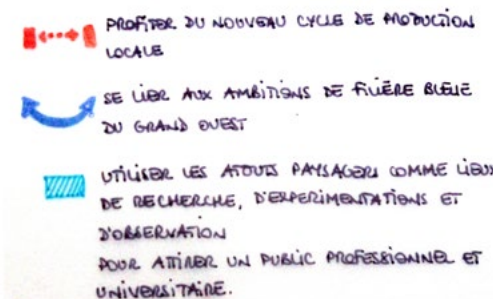 PROFITER DU NOUVEAU CYCLE DE PRODUCTION
LOCALE
SE LIER AUX AMBITIONS DE FILIÈRE BLEUE
DU GRAND OUEST
UTILISER LES ATOUTS PAYSAGERS COMME LIEUX
DE RECHERCHE, D'EXPERIMENTATIONS ET
D'OBSERVATION
POUR ATTIRER UN PUBLIC PROFESSIONNEL ET
UNIVERSITAIRE.